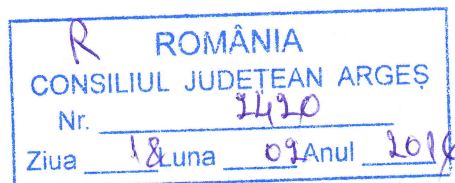 R ROMÂNIA
CONSILIUL JUDEȚEAN ARGEȘ
Nr. 2420
Ziua 18 Luna 02 Anul